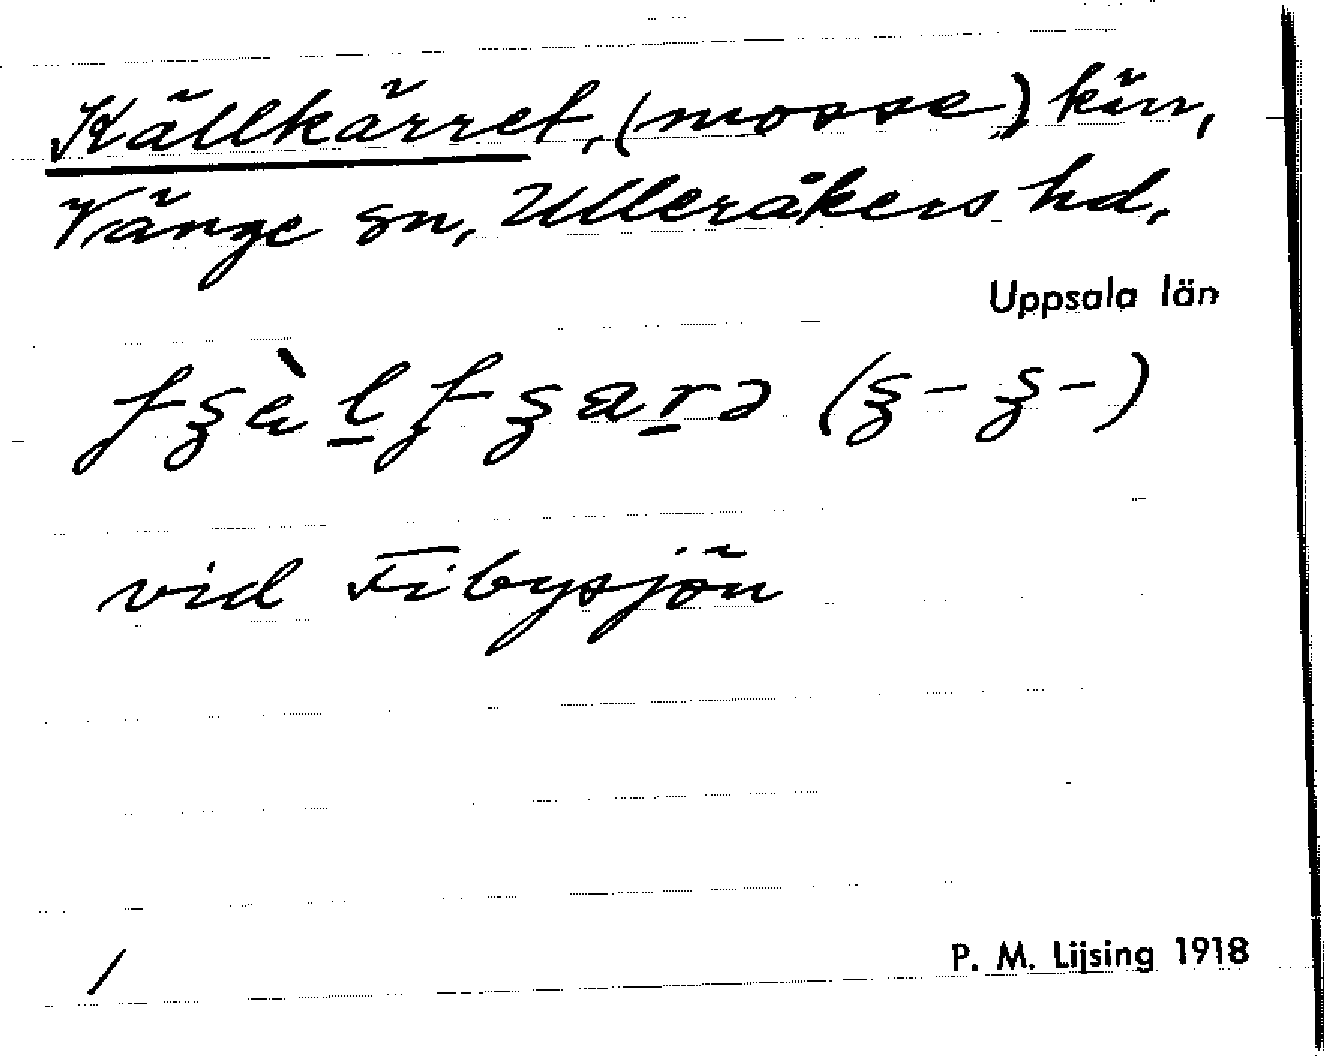 Källkärret, (mosse) kärr,
Vänge sn, Ulleråkers hd.
Uppsala län
vid Fibysjön
/
P. M. Lijsing 1918